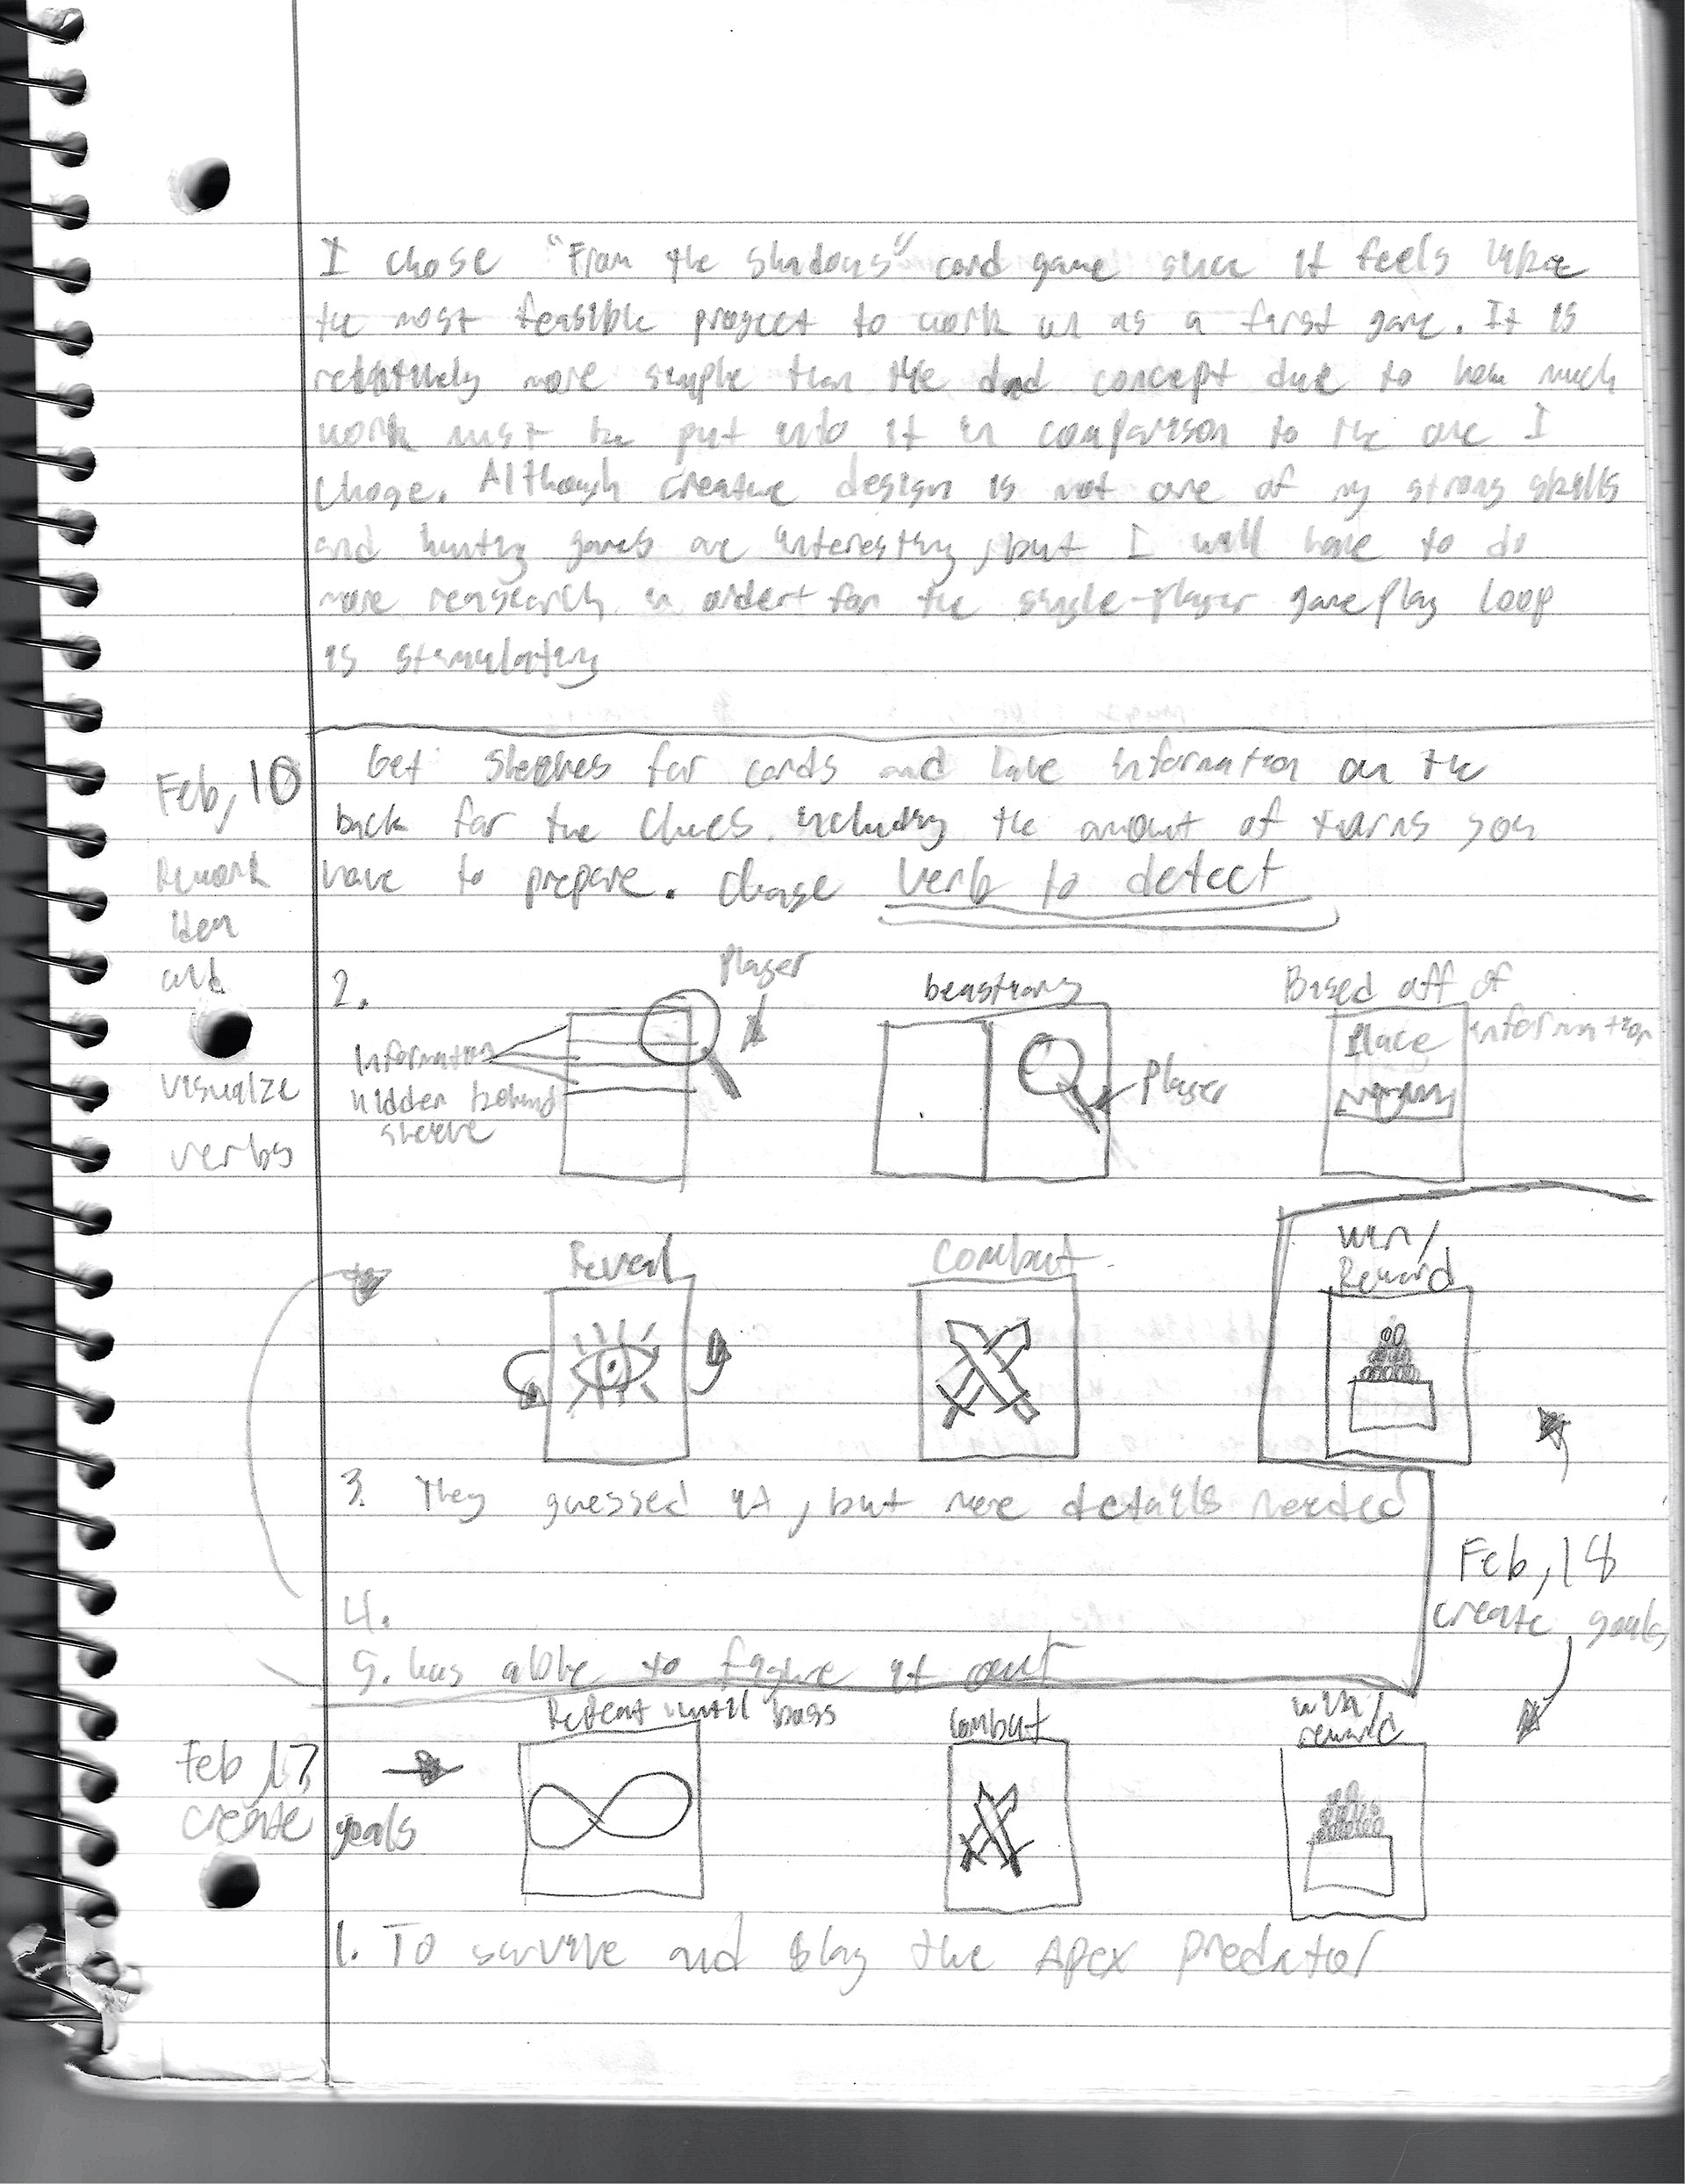 I chose "From the Shadows" card game since it feels like
the most feasible progect to work on as a first game. It is
relatively more simple than the dnd concept due to how much
work must be put into it in comparison to the one I
chose. Although creative design is not one of my strong skills
and hunting games are interesting, but I will have to do
more research in order for the single-player gameplay loop
is stimulating
Feb, 10
Rework
idea
and
visualize
verbs
Get sleeves for cards and have information on the
back for the clues. including the amount of turns you
have to prepare. change verb to detect
2.
Player
Information
hidden behind
sleeve
beastiary
Player
Based off of
information
Place
Reveal
Combat
Win/
Reward
3. They guessed it, but more details needed
4.
5. was able to figure it out
Feb, 18
create goals
Feb, 17
create goals
Repeat until boss
Combat
win/
reward
1. To survive and slay the Apex predator